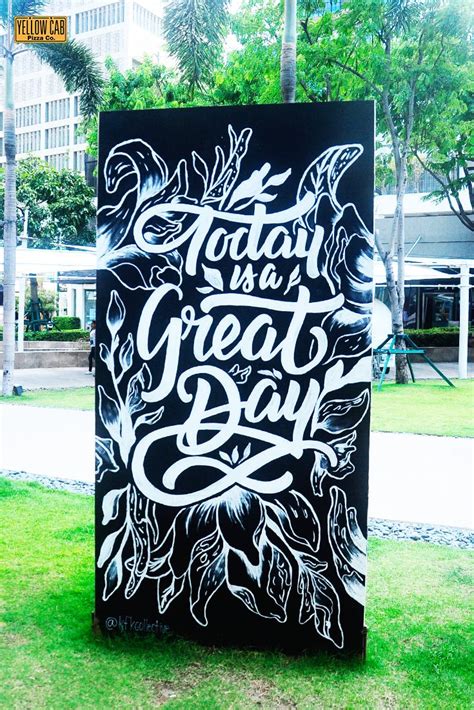 YELLOW CAB
Pizza Co.
Today
is a
Great
Day